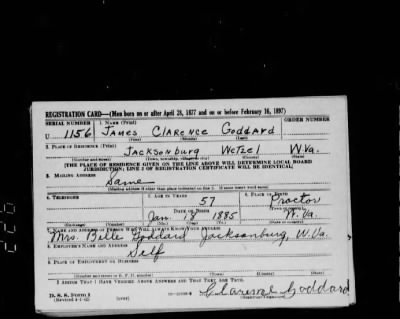 REGISTRATION CARD—(Men born on or after April 28, 1877 and on or before February 16, 1897)
SERIAL NUMBER 1. NAME (Print) ORDER NUMBER
U 1156 James Clarence Goddard
(First) (Middle) (Last)
2. PLACE OF RESIDENCE (Print)
Jacksonburg Wetzel W.Va.
(Number and street) (Town, township, village, or city) (County) (State)
[THE PLACE OF RESIDENCE GIVEN ON THE LINE ABOVE WILL DETERMINE LOCAL BOARD
JURISDICTION; LINE 2 OF REGISTRATION CERTIFICATE WILL BE IDENTICAL]
3. MAILING ADDRESS
Same
[Mailing address if other than place indicated on line 2. If same insert word same]
4. TELEPHONE 5. AGE IN YEARS 6. PLACE OF BIRTH
57 Proctor
DATE OF BIRTH
Jan. 18 1885 W. Va.
7. NAME AND ADDRESS OF PERSON WHO WILL ALWAYS KNOW YOUR ADDRESS
Mrs. Belle Goddard Jacksonburg, W. Va.
8. EMPLOYER'S NAME AND ADDRESS
Self
9. PLACE OF EMPLOYMENT OR BUSINESS
(Number and street or R. F. D. number) (Town) (County) (State)
I AFFIRM THAT I HAVE VERIFIED ABOVE ANSWERS AND THAT THEY ARE TRUE.
D. S. S. Form 1
(Revised 4-1-42) (over)
Clarence Goddard